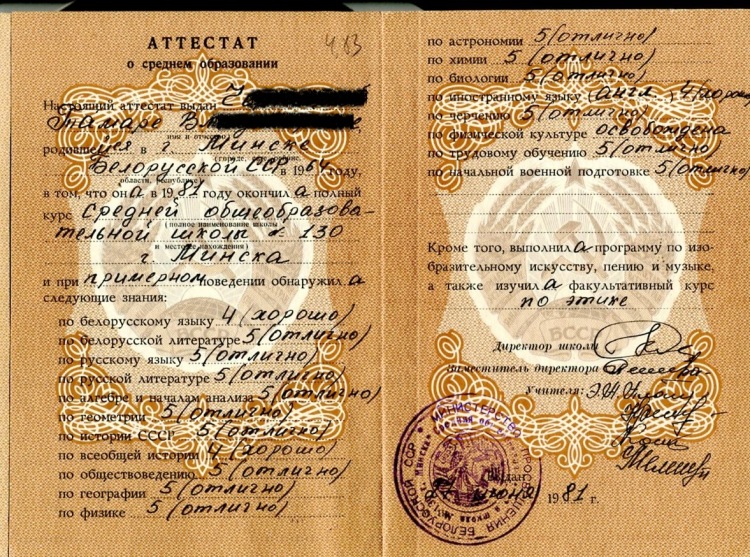 АТТЕСТАТ
о среднем образовании
Настоящий аттестат выдан
Тамаре
имя и отчество
родившейся в г. Минске
(городе, селе, деревне,
Белорусской ССР в 1964 году,
области, республике)
в том, что она в 1981 году окончила полный
курс Средней общеобразова-
(полное наименование школы
тельной школы № 130
и местонахождение)
г. Минска
и при примерном поведении обнаружила
следующие знания:
по белорусскому языку 4 (хорошо)
по белорусской литературе 5 (отлично)
по русскому языку 5 (отлично)
по русской литературе 5 (отлично)
по алгебре и началам анализа 5 (отлично)
по геометрии 5 (отлично)
по истории СССР 5 (отлично)
по всеобщей истории 4 (хорошо)
по обществоведению 5 (отлично)
по географии 5 (отлично)
по физике 5 (отлично)
по астрономии 5 (отлично)
по химии 5 (отлично)
по биологии 5 (отлично)
по иностранному языку (англ.) 4 (хорошо)
по черчению 5 (отлично)
по физической культуре освобождена
по трудовому обучению 5 (отлично)
по начальной военной подготовке 5 (отлично)
Кроме того, выполнила программу по изо-
бразительному искусству, пению и музыке,
а также изучила факультативный курс
по этике
БССР
Директор школы
Заместитель директора
Учителя:
МИНИСТЕРСТВО ПРОСВЕЩЕНИЯ БЕЛОРУССКОЙ ССР
Выдан
июня 1981 г.